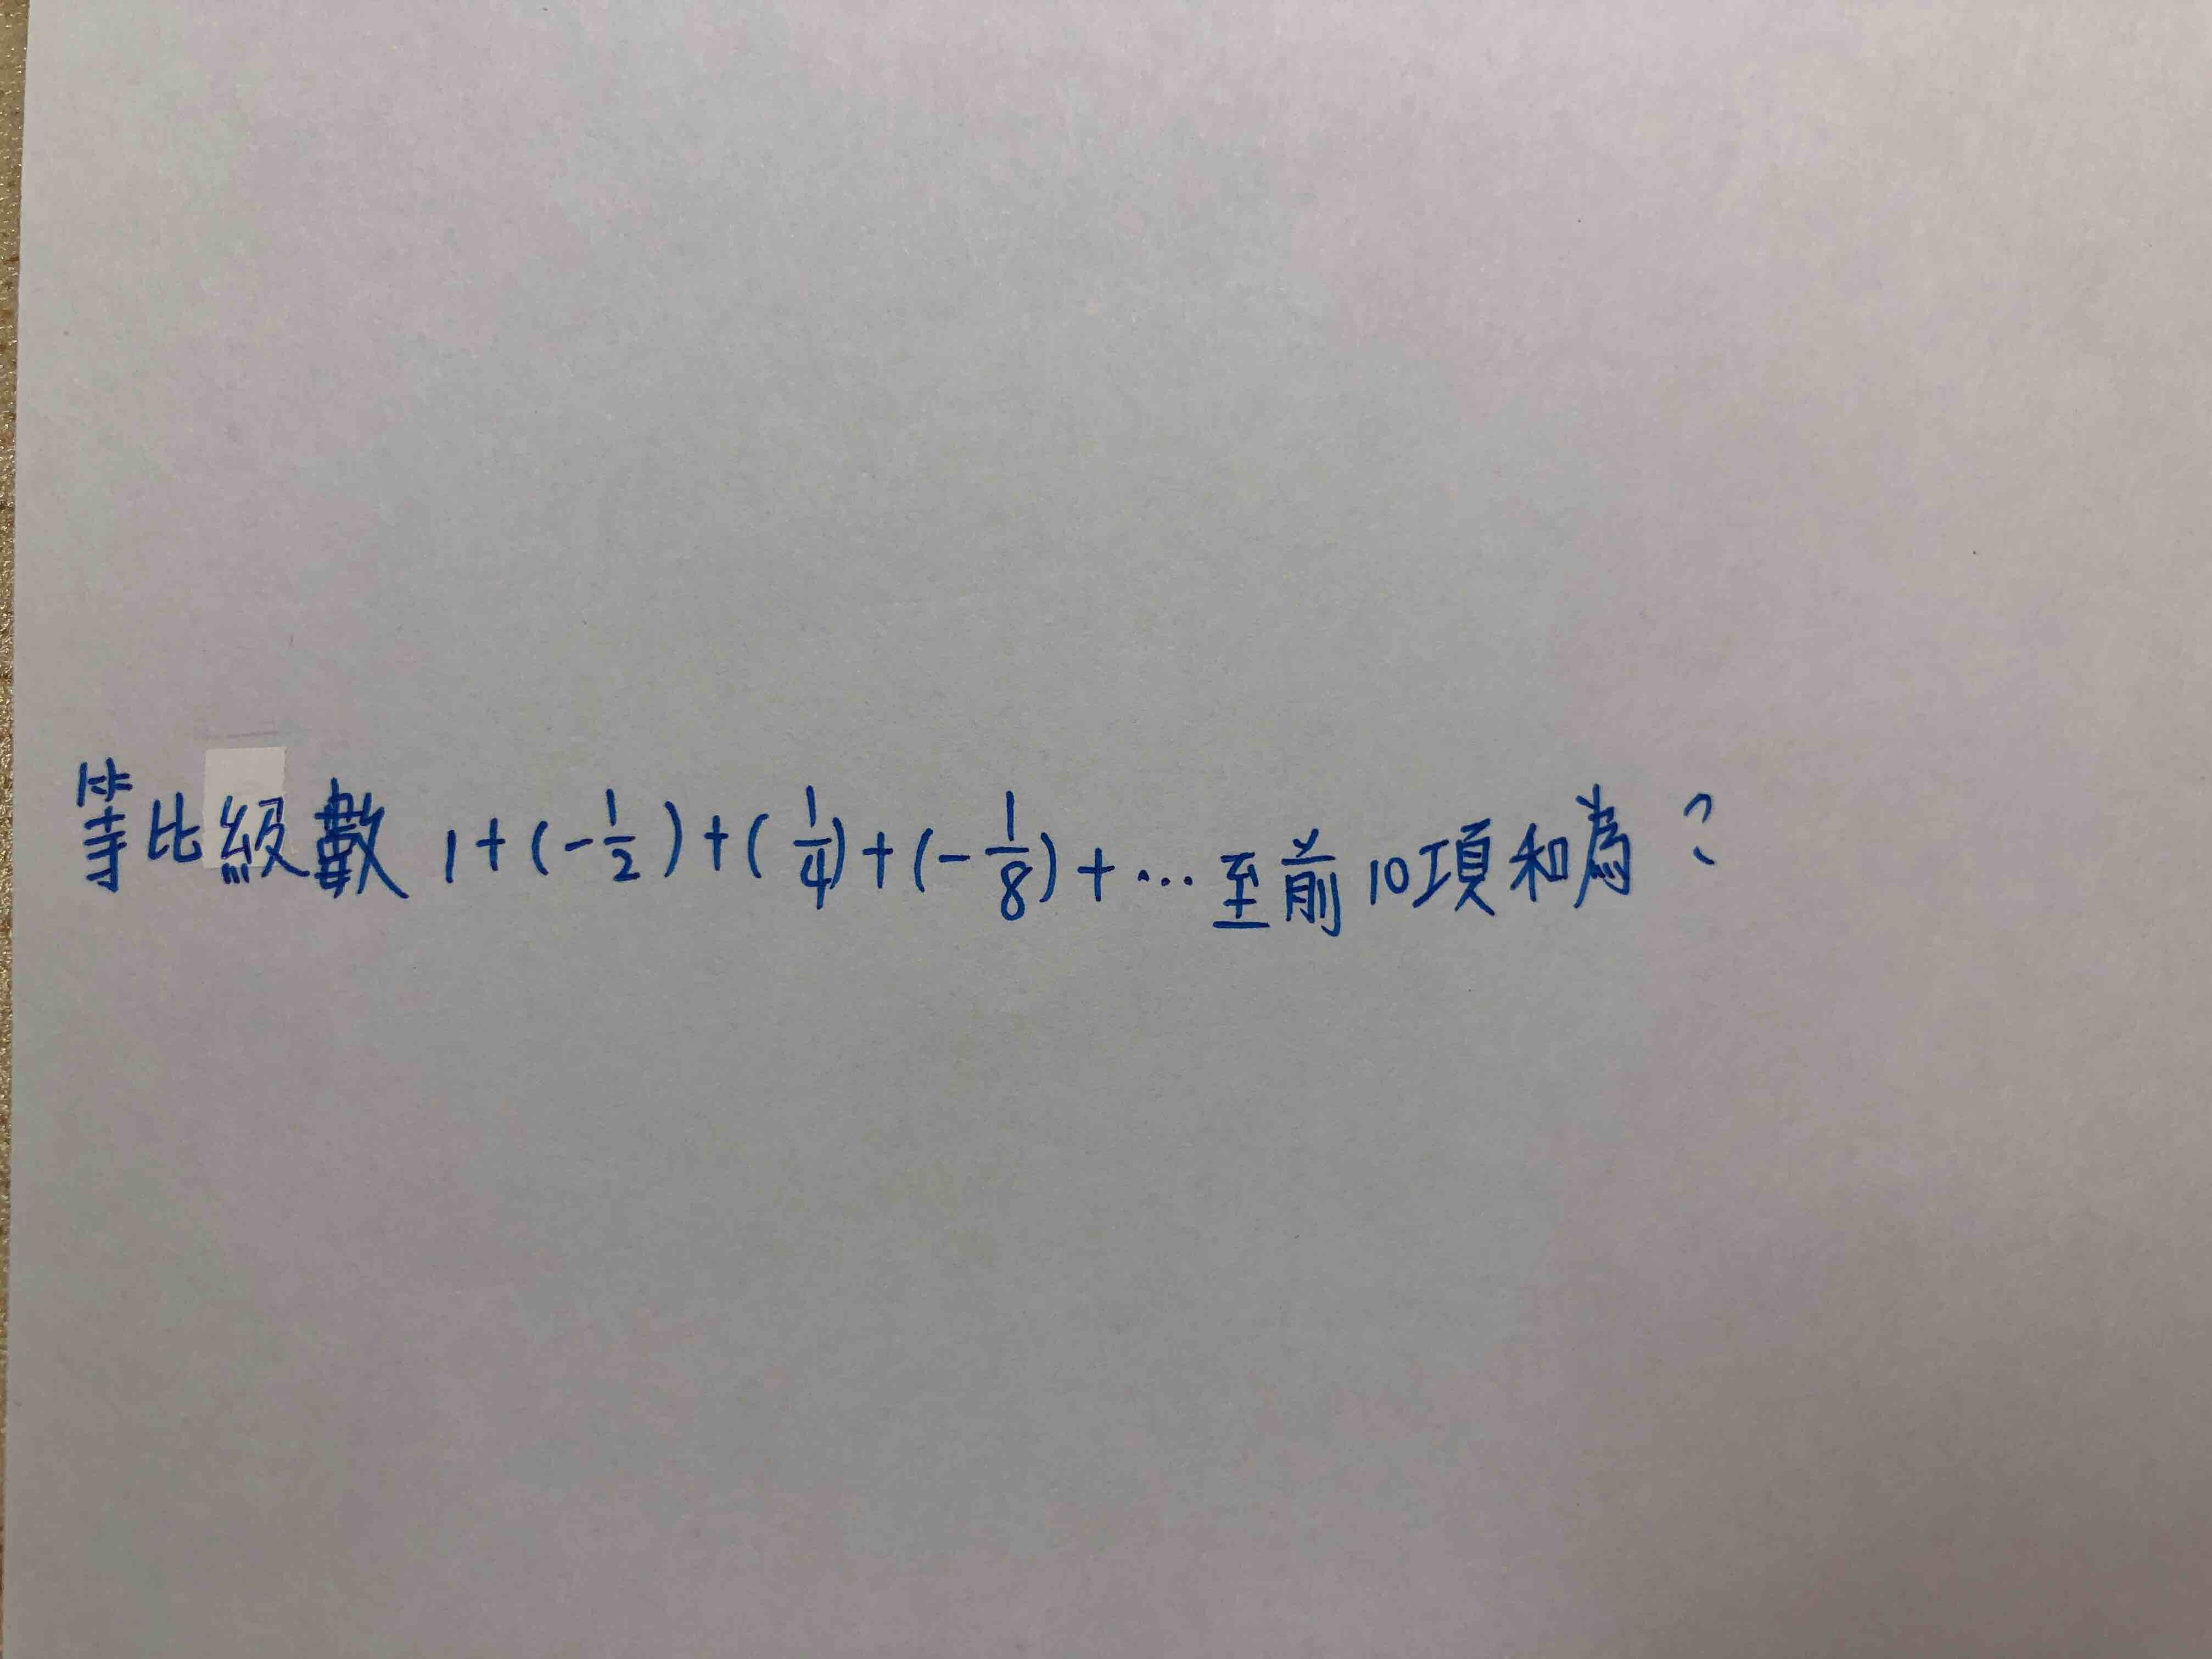 等比級數 1+(-1/2)+(1/4)+(-1/8)+⋯至前10項和為?